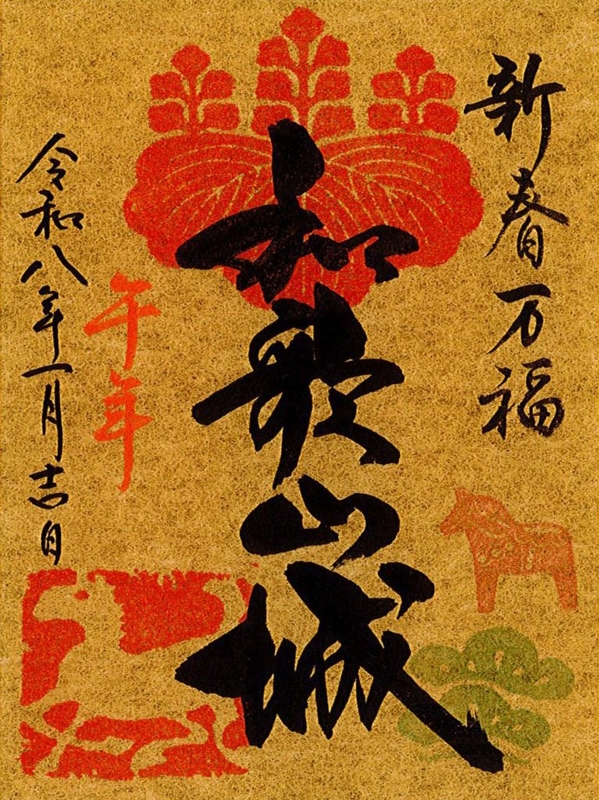 新春万福
和歌山城
午年
令和八年一月吉日